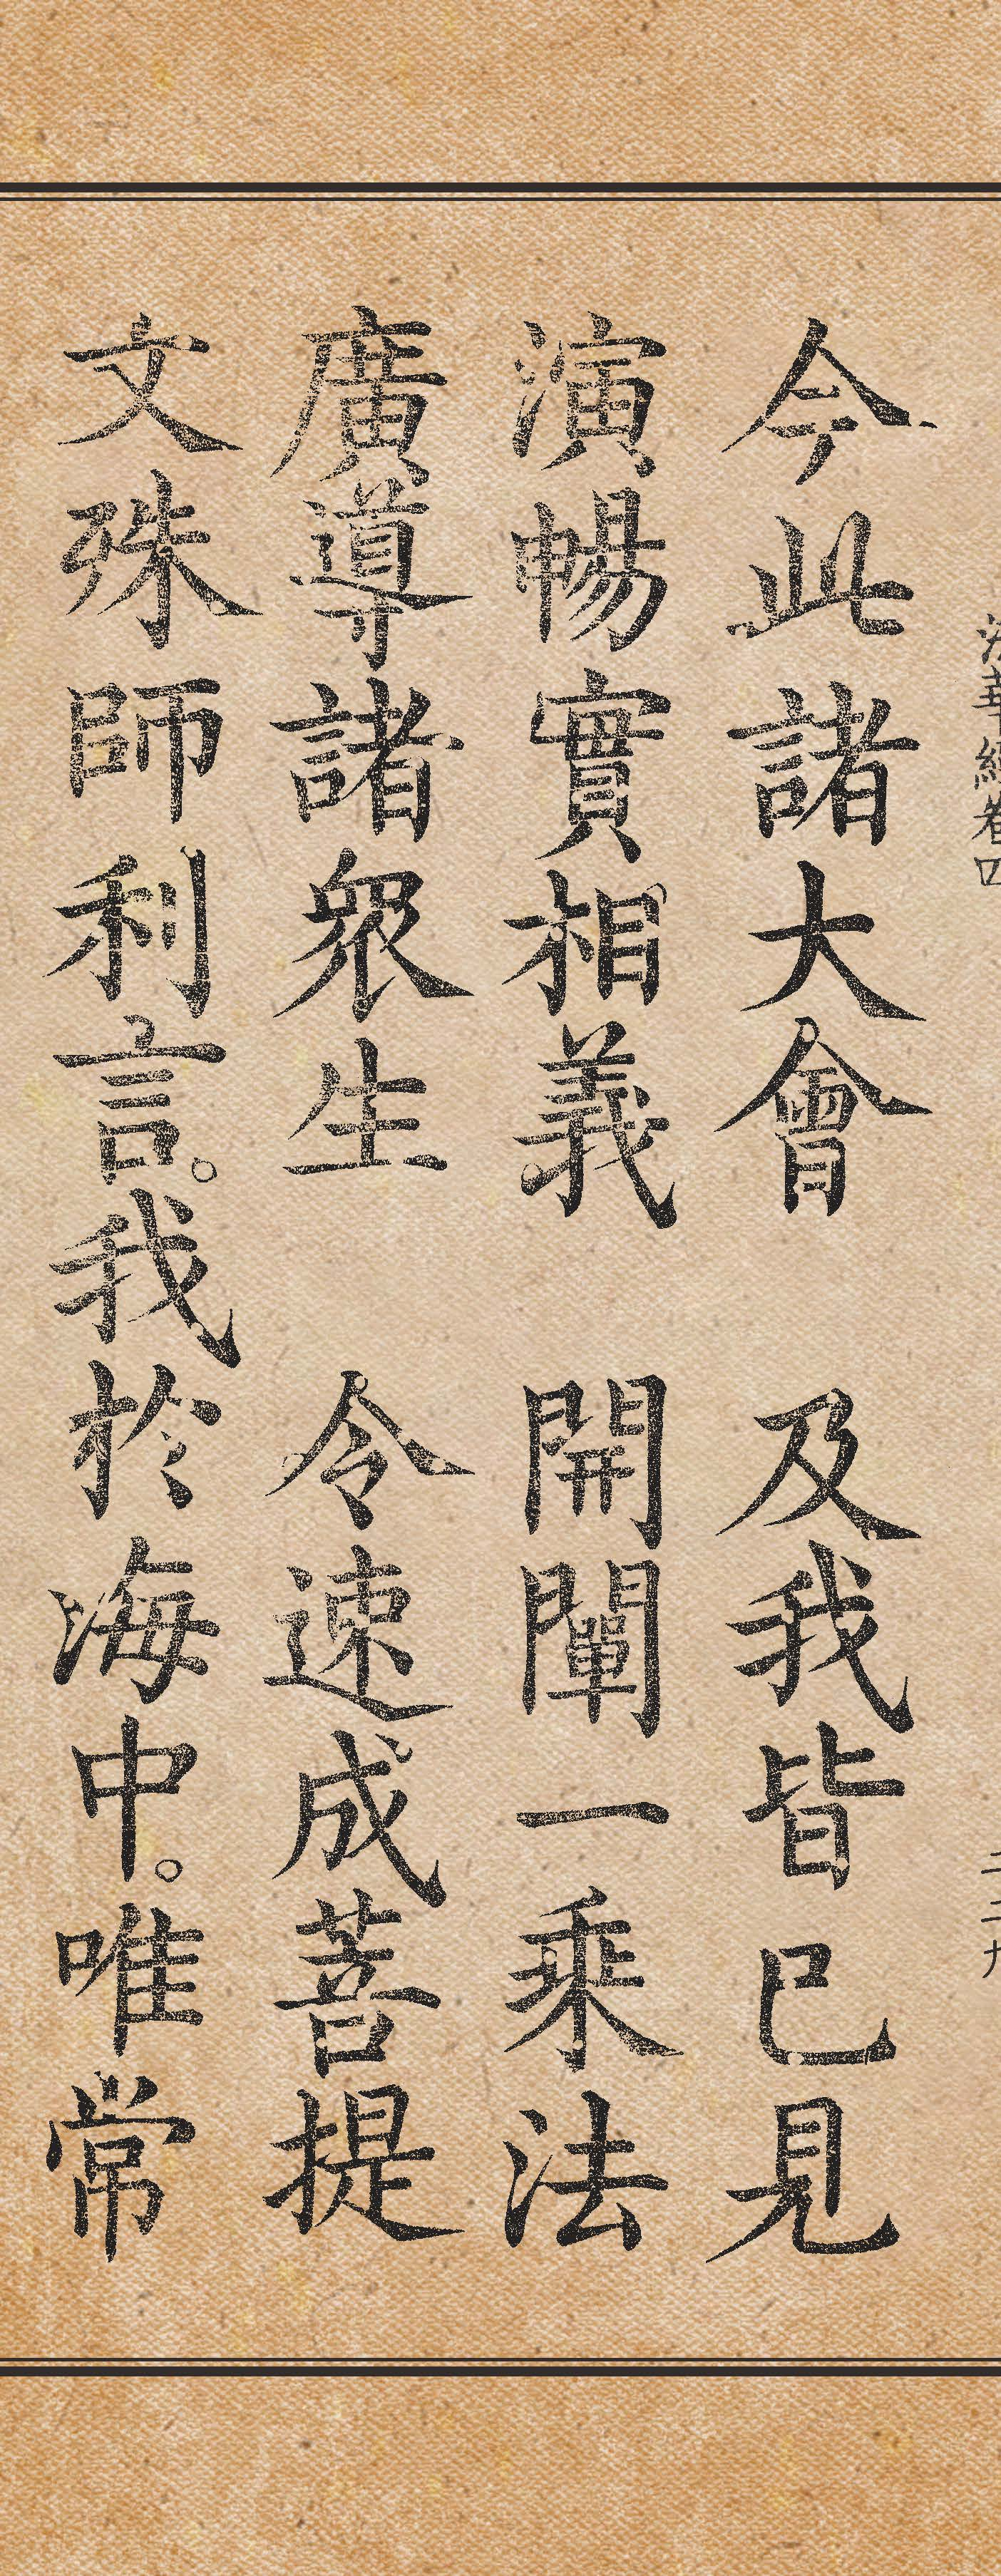 法華經卷四
二二九
今此諸大會　及我皆已見
演暢實相義　開闡一乘法
廣導諸衆生　令速成菩提
文殊師利言。我於海中。唯常